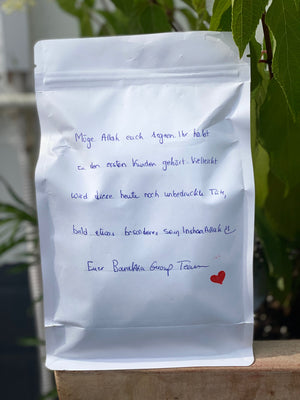 Möge Allah euch segnen. Ihr habt
zu den ersten Kunden gehört. Vielleicht
wird diese heute noch unbedruckte Tüte,
bald etwas besonderes sein. Inshaa Allah
Eure Group Team